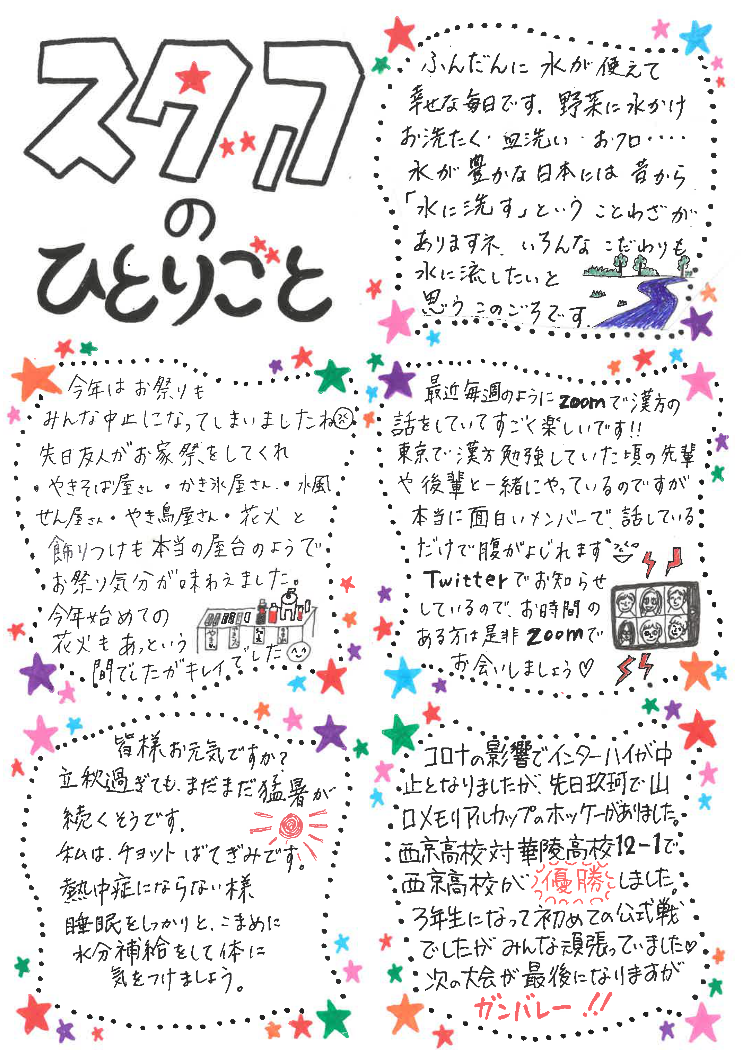 スタッフ
の
ひとりごと
ふんだんに 水が使えて
幸せな毎日です。野菜に水かけ
お洗たく・皿洗い・おフロ・・・・
水が豊かな日本には 昔から
「水に洗す」という ことわざが
ありますネ、いろんな こだわりも
水に流したいと
思う このごろです。
今年は お祭りも
みんな中止になってしまいましたね
先日友人がお家祭をしてくれ
・やきそば屋さん・かき氷屋さん・水風
せん屋さん・やき鳥屋さん・花火 と
飾りつけも本当の屋台のようで
お祭り気分が味わえました。
今年始めての
花火も あっという
間でしたがキレイでした
最近毎週のようにzoomで漢方の
話をしていてすごく楽しいです!!
東京で漢方勉強していた頃の先輩
や後輩と一緒にやっているのですが
本当に面白いメンバーで、話している
だけで腹がよじれます
Twitterでお知らせ
しているので、お時間の
ある方は是非zoomで
お会いしましょう♡
皆様お元気ですか?
立秋過ぎても、まだまだ猛暑が
続くそうです。
私は、チョット ばてぎみです。
熱中症にならない様
睡眠をしっかりと、こまめに
水分補給をして体に
気をつけましょう。
コロナの影響でインターハイが中
止となりましたが、先日玖珂で山
口メモリアルカップのホッケーがありました。
西京高校対華陵高校12-1で
西京高校が 優勝 しました。
3年生になって初めての公式戦
でしたが みんな頑張っていました♡
次の大会が最後になりますが
ガンバレー!!